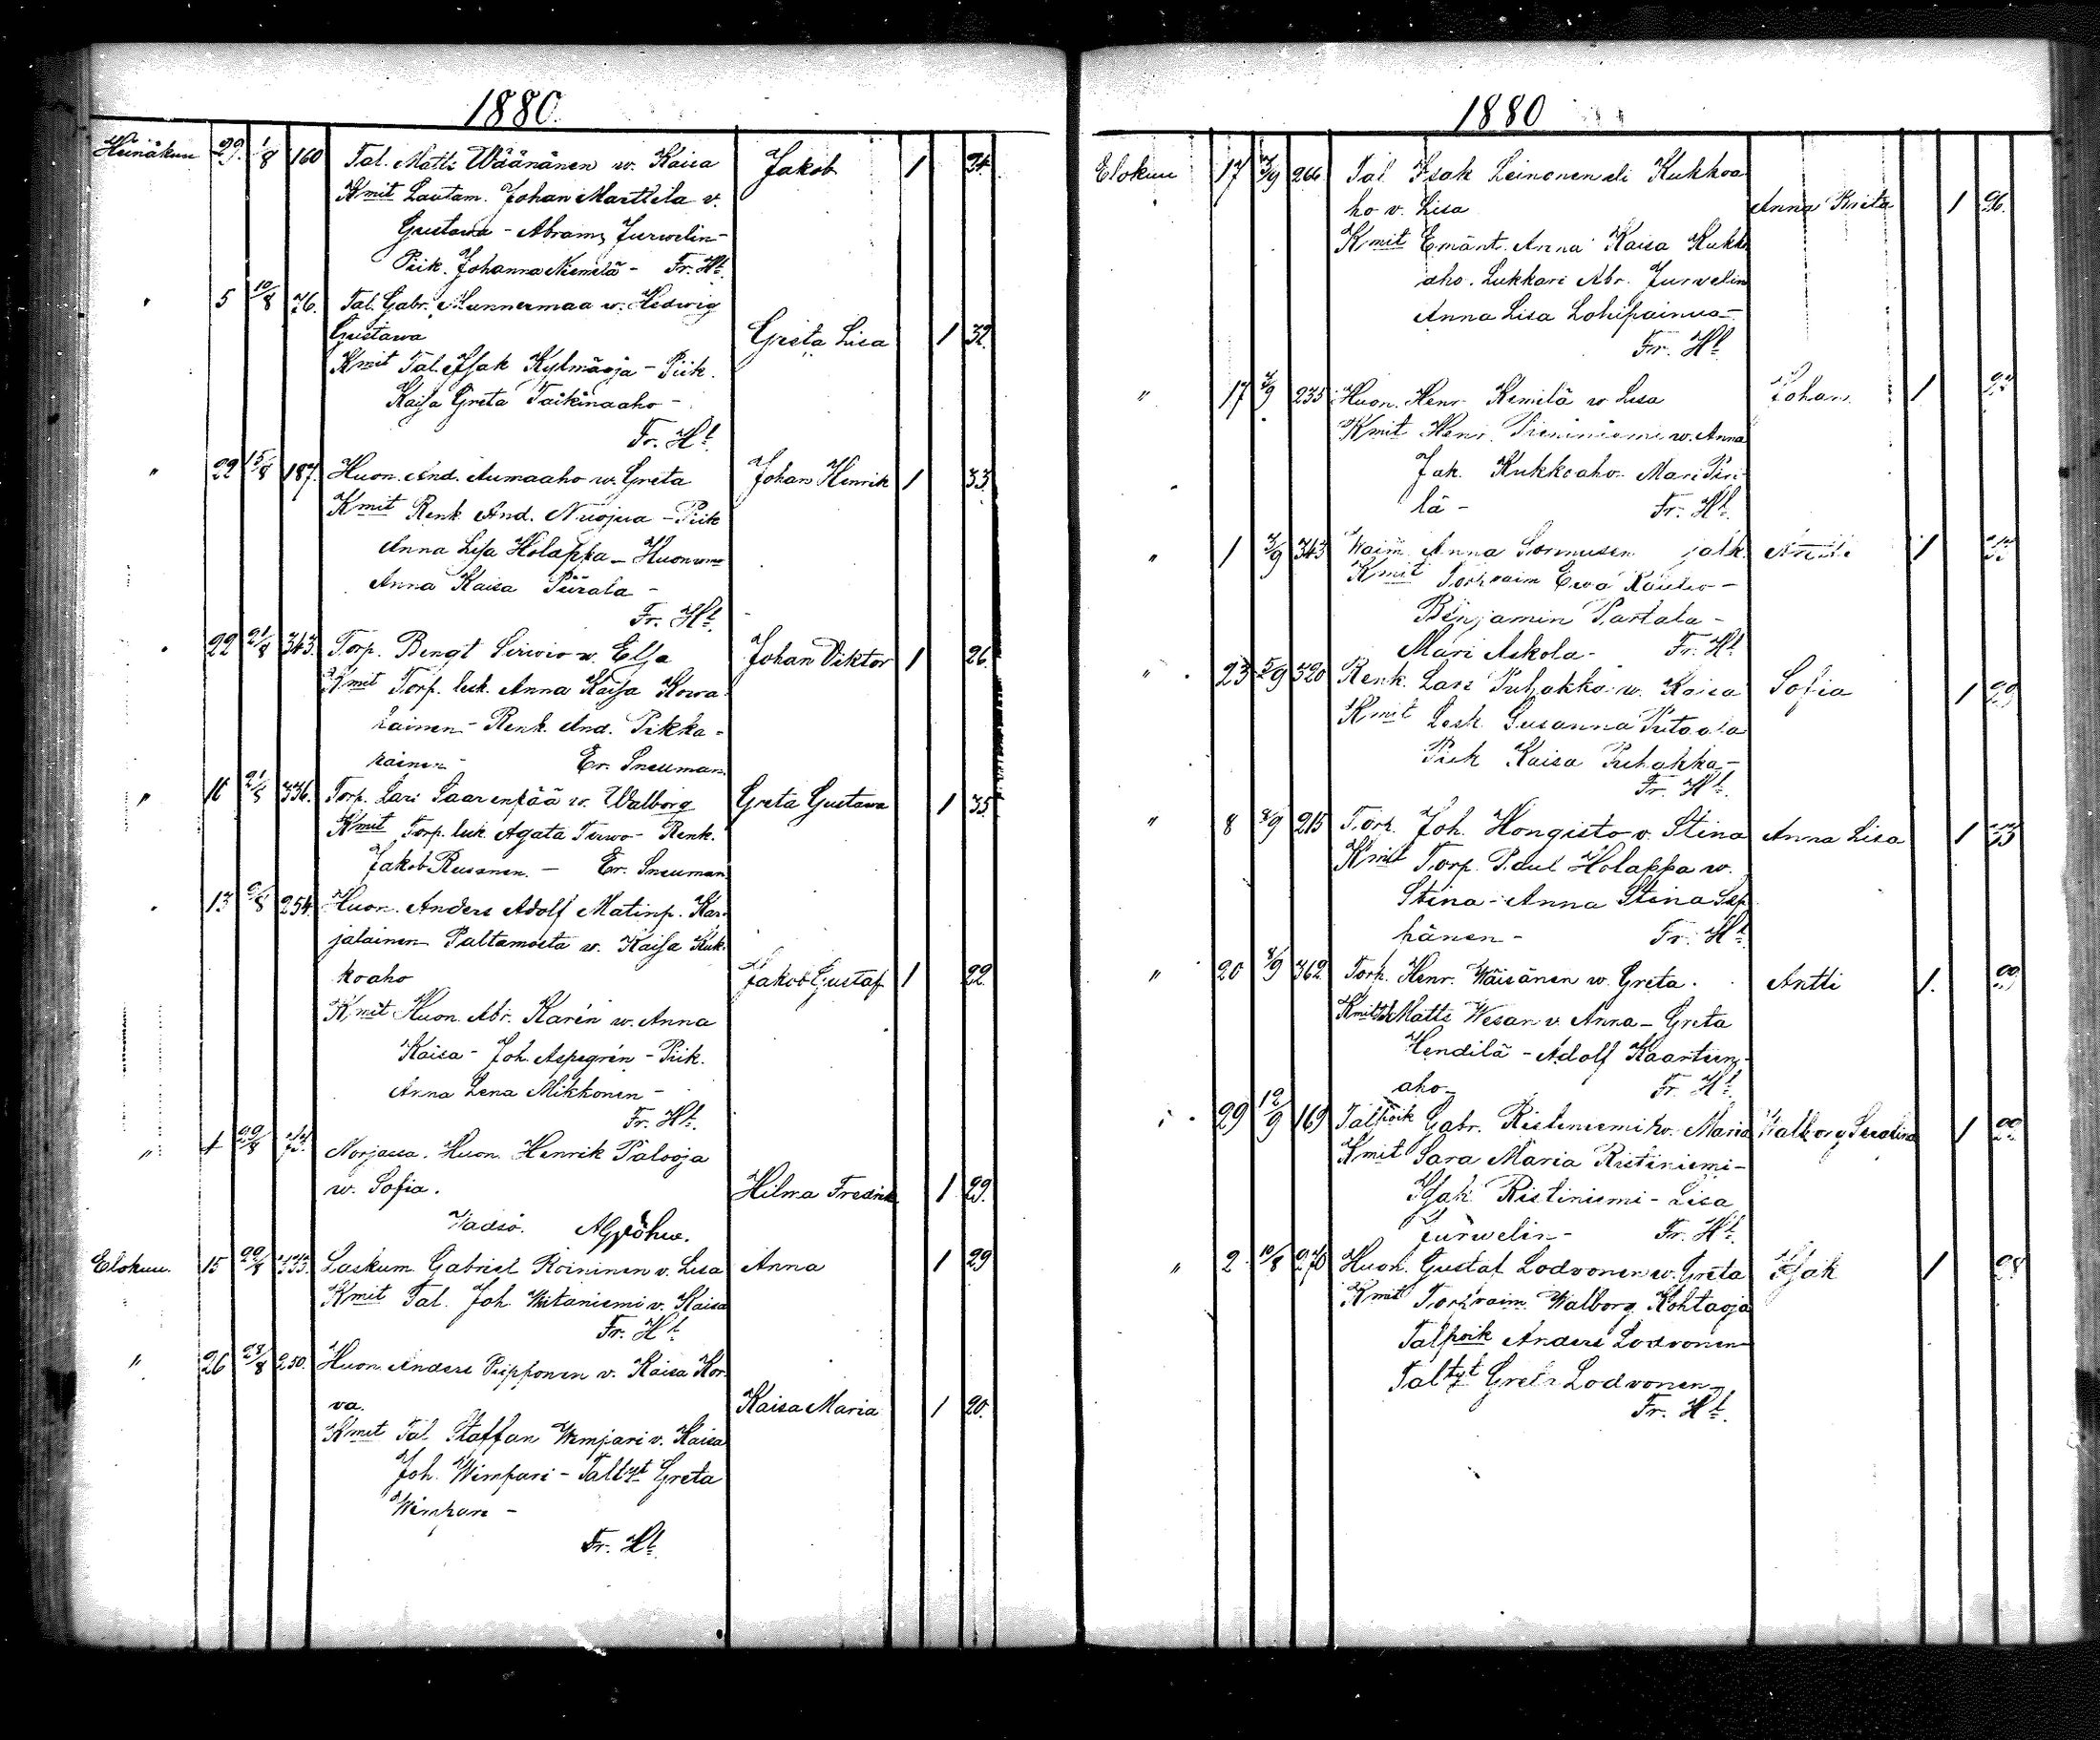 1880.
Heinäkuu 29. 1/8 160 Tal. Matti Wäänänen w. Kaisa Jakob 1 34.
Kmit Lautam. Johan Marttila v.
Gustava - Abram Jurvelin -
Piik. Johanna Niemelä - Fr. Ht.
" 5 10/8 76. Tal. Gabr. Mannermaa w. Hedwig
Gustava Greta Lisa 1 32.
Kmit Tal. Isak Kylmäoja - Piik.
Kaisa Greta Taikinaaho -
Fr. Ht.
" 22 15/8 187. Huon. And. Aumaaho w. Greta Johan Henrik 1 33.
Kmit Renk And. Nuojua - Piik
Anna Lisa Holappa - Huon
Anna Kaisa Piirala -
Fr. Ht.
" 22 21/8 343. Torp. Bengt Sirviö w. Elsa Johan Viktor 1 26.
Kmit Torp. lesk. Anna Kaisa Kova-
lainen - Renk. And. Pikka-
rainen - Er. Sneuman.
" 16 21/8 336. Torp. Lars Saarenpää w. Walborg Greta Gustava 1 35.
Kmit Torp. lesk. Agata Turvo - Renk.
Jakob Rusanen. - Er. Sneuman.
" 13 /8 254. Huon. Anders Adolf Matinp. Kar-
jalainen Paltamosta w. Kaisa Kuk-
koaho Jakob Gustaf 1 22.
Kmit Huon. Abr. Karén w. Anna
Kaisa - Joh. Aspegrén - Piik.
Anna Lena Mikkonen -
Fr. Ht.
" 4 22/8 Norjassa. Huon. Henrik Palooja
w. Sofia. Hilma Fredrik 1 29.
Wadsö.
Elokuu. 15 22/8 133. Laskum. Gabriel Roininen v. Lisa Anna 1 29
Kmit Tal. Joh. Witaniemi v. Kaisa
Fr. Ht.
" 26 28/8 250. Huon. Anders Piipponen v. Kaisa Kor-
va. Kaisa Maria 1 20.
Kmit Tal. Staffan Wimpari v. Kaisa
Joh. Wimpari - Taltyt Greta
Wimpari -
Fr. Ht.
1880
Elokuu 17 /9 266 Tal Isak Leinonen eli Kukkoa
ho v. Lisa Anna Brita 1 26.
Kmit Emänt. Anna Kaisa Kukko
aho. Lukkari Abr. Jurvelin
Anna Lisa Lohipainua -
Fr. Ht.
" 17 /9 235 Huon. Henr. Kemilä w. Lisa Johan 1
Kmit Henr. Pieniniemi w. Anna
Jak. Kukkoaho - Mari Piri
lä - Fr. Ht.
" 1 /9 343 Waim. Anna Sormunen jalk. Antti 1
Kmit Torp. vaim Ewa Rautio -
Benjamin Partala -
Mari Askola - Fr. Ht.
" 23 5/9 320 Renk. Lars Puhakka w. Kaisa Sofia 1
Kmit Lesk. Susanna
Piik Kaisa Puhakka -
Fr. Ht.
" 8 8/9 215 Torp. Joh. Hongisto v. Stina Anna Lisa 1 33
Kmit Torp. Paul Holappa w.
Stina - Anna Stina Sep
pänen - Fr. Ht.
" 20 8/9 362 Torp. Henr. Wäisänen w. Greta. Antti 1.
Kmit Matti Wesan v. Anna - Greta
Hendilä - Adolf Kaarteen-
aho - Fr. Ht.
29 12/9 169 Talpoik Gabr. Ristiniemi w. Maria Walborg Serafina 1
Kmit Sara Maria Ristiniemi -
Isak Ristiniemi - Lisa
Jurvelin - Fr. Ht.
" 2 10/8 270 Huon. Gustaf Lodvonen w. Greta Isak 1 28
Kmit Torp. vaim. Walborg Kohtaoja
Talpoik Anders Lodvonen
Taltyt Greta Lodvonen -
Fr. Ht.